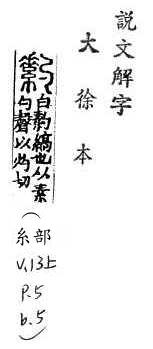 說文解字
大徐本
白䋤縞也从素
勺聲以灼切
(糸部
V.13上
P.5
b.5)